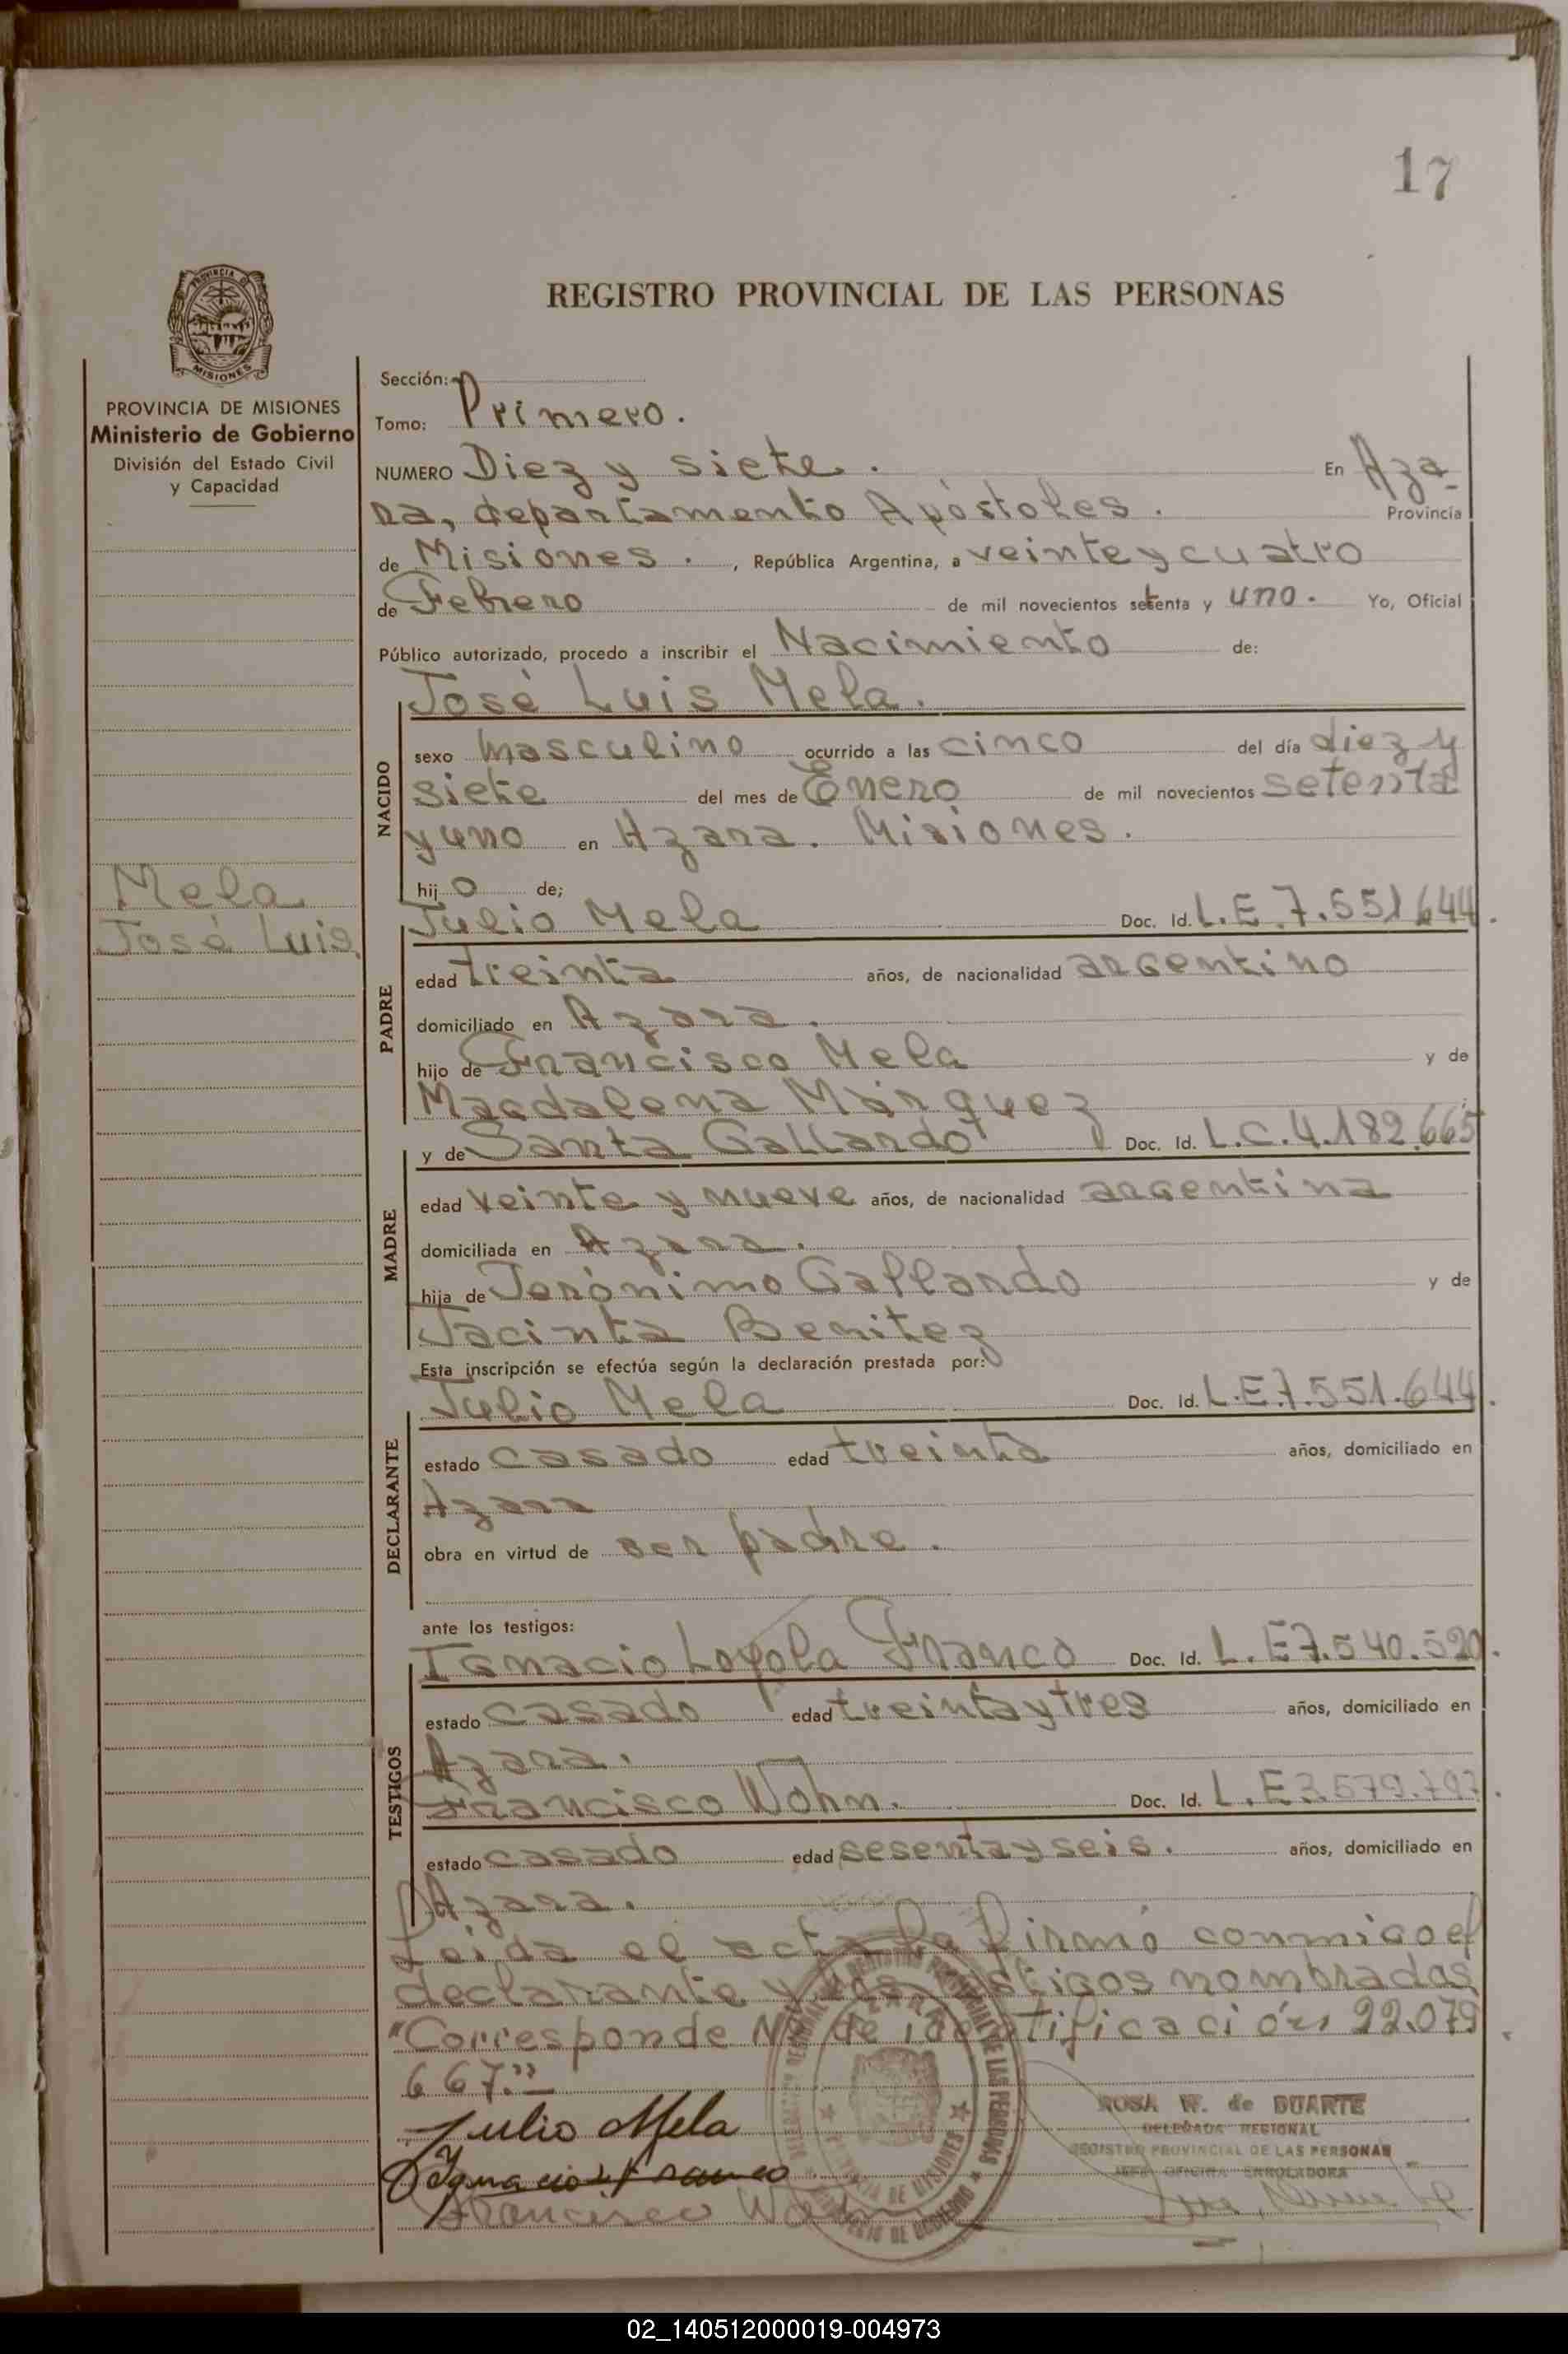 17
PROVINCIA DE MISIONES
REGISTRO PROVINCIAL DE LAS PERSONAS
PROVINCIA DE MISIONES
Ministerio de Gobierno
División del Estado Civil
y Capacidad
Mela
José Luis
Sección:
Tomo: Primero.
NUMERO Diez y siete. En Aza-
ra, departamento Apóstoles. Provincia
de Misiones. , República Argentina, a veinte y cuatro
de Febrero de mil novecientos setenta y uno. Yo, Oficial
Público autorizado, procedo a inscribir el Nacimiento de:
José Luis Mela.
NACIDO
sexo masculino ocurrido a las cinco del día diez y
siete del mes de Enero de mil novecientos setenta
y uno en Azara. Misiones.
hijo de;
Julio Mela Doc. Id. L.E.7.551.644.
PADRE
edad treinta años, de nacionalidad argentino
domiciliado en Azara.
hijo de Francisco Mela y de
Magdalena Márquez
y de Santa Gallardo Doc. Id. L.C.4.182.665
MADRE
edad veinte y nueve años, de nacionalidad argentina
domiciliada en Azara.
hija de Jerónimo Gallardo y de
Jacinta Benitez
Esta inscripción se efectúa según la declaración prestada por:
Julio Mela Doc. Id. L.E.7.551.644.
DECLARANTE
estado casado edad treinta años, domiciliado en
Azara
obra en virtud de ser padre.
ante los testigos:
Ignacio Loyola Franco Doc. Id. L.E.7.540.520.
TESTIGOS
estado casado edad treinta y tres años, domiciliado en
Azara.
Francisco Wohn. Doc. Id. L.E.3.579.797.
estado casado edad sesenta y seis. años, domiciliado en
Azara.
Leida el acta la firmó conmigo el
declarante y los testigos nombrados
"Corresponde Nº de identificación 22.079.
667."
Julio Mela
Ignacio L. Franco
Francisco
ROSA W. de DUARTE
DELEGADA REGIONAL
REGISTRO PROVINCIAL DE LAS PERSONAS
JEFE OFICINA ENROLADORA
02_140512000019-004973